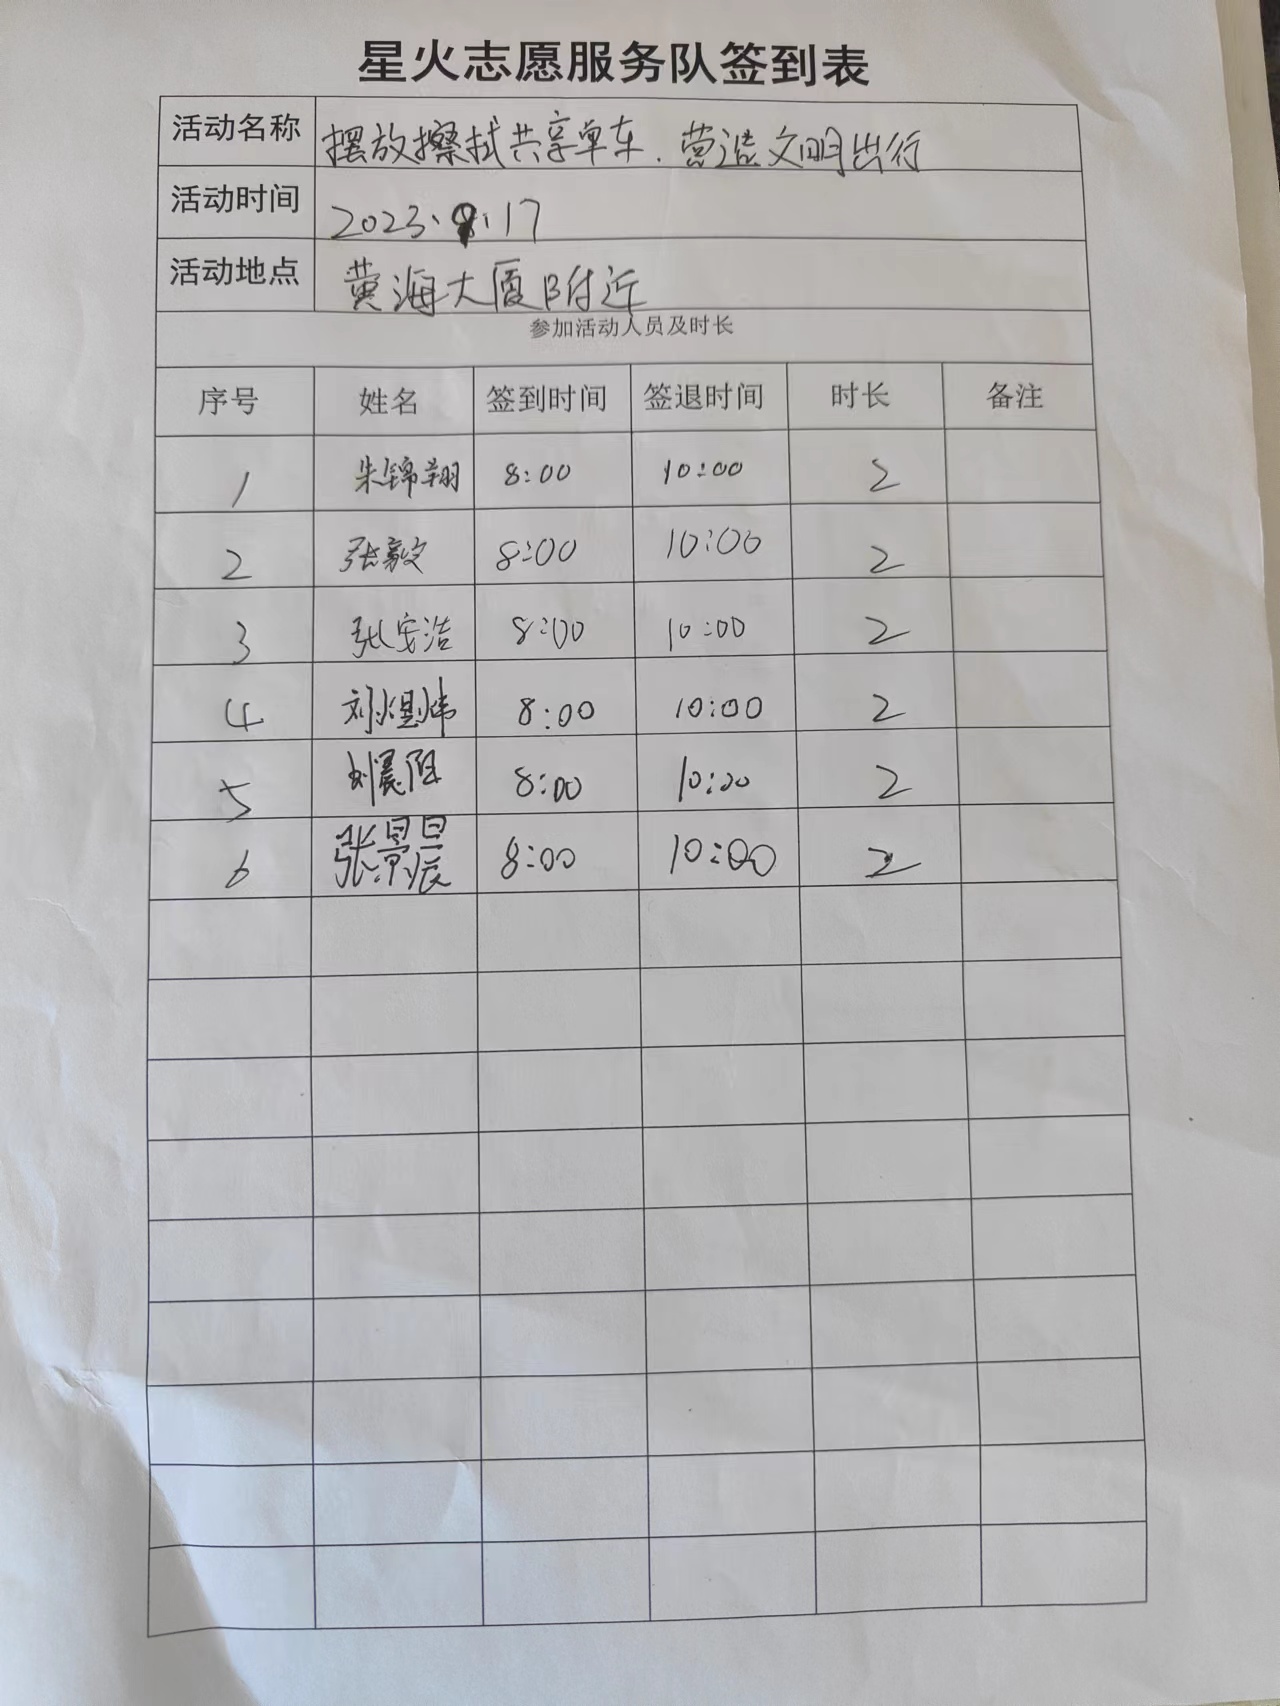 星火志愿服务队签到表
活动名称 摆放擦拭共享单车、营造文明出行
活动时间 2023、9、17
活动地点 黄海大厦附近
参加活动人员及时长
序号 姓名 签到时间 签退时间 时长 备注
1 朱锦翔 8:00 10:00 2
2 张毅 8:00 10:00 2
3 张宏洁 8:00 10:00 2
4 刘煜炜 8:00 10:00 2
5 刘晨阳 8:00 10:00 2
6 张景晨 8:00 10:00 2